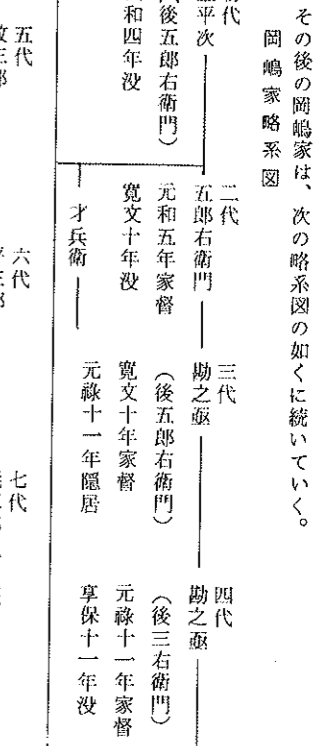 その後の岡嶋家は、次の略系図の如くに続いていく。
岡嶋家略系図
初代
平次
後五郎右衛門）
和四年没
二代
五郎右衛門
元和五年家督
寛文十年没
才兵衛
三代
勘之亟
（後五郎右衛門）
寛文十年家督
元禄十一年隠居
四代
勘之亟
（後三右衛門）
元禄十一年家督
享保十一年没
五代
六代
七代